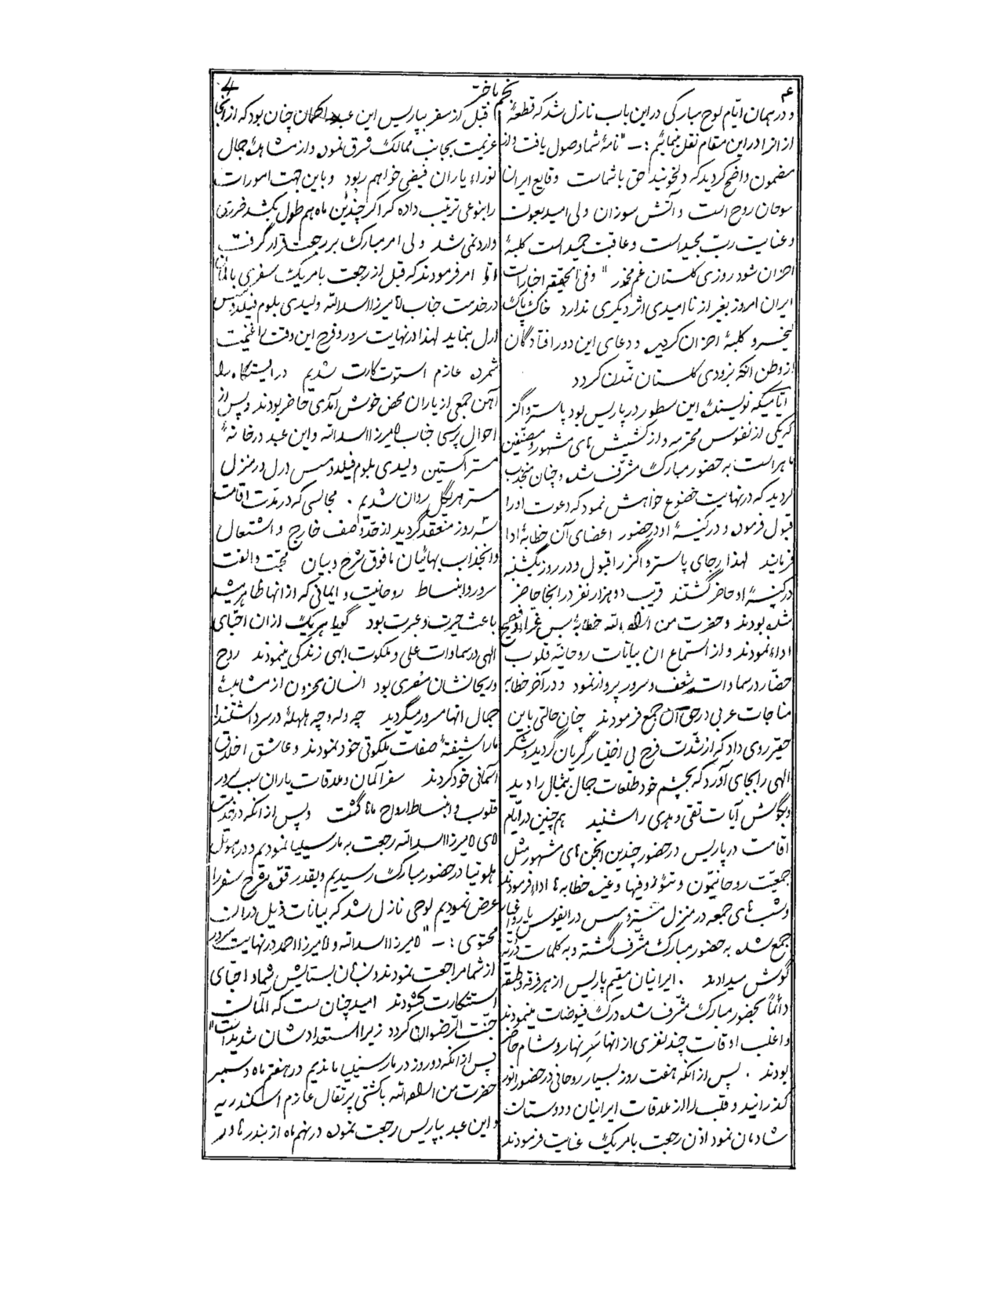 ۴
نجم باختر
و در همان ایّام لوح مبارکی در این باب نازل شد که قطعهٔ
از انرا در این مقام نقل نمائیم :ـ " نامهٔ شما وصول یافت و از
مضمون واضح گردید که دلخونید حق با شماست وقایع ایران
سوهان روح است و آتش سوزان ولی امید بعون
و عنایت ربّ مجید است و عاقبت حمید است کلبهٔ
احزان شود روزی گلستان غم مخور " و فی الحقیقه اخبارات
ایران امروز بغیر از نا امیدی اثر دیگری ندارد خاک پاک
کیخسرو کلبهٔ احزان گردیده و دعای این دور افتادگان
از وطن انکه بزودی گلستان تمدن گردد
ایّامیکه نویسندهٔ این سطور در پاریس بود پاستر واگنر
که یکی از نفوس محترمه و از کشیش های مشهور و مصنّفین
ماهر است به حضور مبارک مشرّف شد و چنان منجذب
گردید که در نهایت خضوع خواهش نمود که دعوت او را
قبول فرموده و در کنیسهٔ او در حضور اعضای آن خطابهٔ ادا
فرمایند لهذا رجای پاستر واگنر را قبول و در روز یکشنبه
در کنیسهٔ او حاضر گشتند قریب دو هزار نفر در انجا حاضر
شده بودند و حضرت من اراده الله خطابهٔ بس غرّا و فصیح
اداء نمودند و از استماع ان بیانات روحانیّه قلوب
حضّار در سماوات شعف و سرور پرواز نمود و در آخر خطابه
مناجات عربی در حق آن جمع فرمودند چنان حالتی باین
حقیر روی داد که از شدّت فرح بی اختیار گریان گردید و شکر
الهی را بجای آورد که بچشم خود طلعات جمال بیمثال را دید
و بگوش آیات تقی و هدی را شنید هم چنین در ایّام
اقامت در پاریس در حضور چندین انجمن های مشهور مثل
جمعیّت روحانیّون و تئوزوفیها و غیره خطابه ها اداء فرمودند
و شب های جمعه در منزل مستر و مسس دریفوس یاران و اغیار
جمع شده به حضور مبارک مشرّف گشته و به کلمات درّیّه
گوش میدادند . ایرانیان مقیم پاریس از هر فرقه و طبقه
دائماً بحضور مبارک مشرّف شده درک فیوضات مینمودند
و اغلب اوقات چند نفری از انها سر نهار و شام حاضر
بودند . پس از انکه هفت روز بسیار روحانی در حضور انور
گذرانید و قلب را از ملاقات ایرانیان و دوستان
شادمان نمود اذن رجعت بامریک عنایت فرمودند
قبل از سفر بپاریس این عبد را گمان چنان بود که از انجا
عزیمت بجانب ممالک شرق نموده و از مشاهدهٔ جمال
نوراء یاران فیضی خواهم ربود و باین جهت امورات
را بنوعی ترتیب داده که اگر چندین ماه هم طول بکشد ضرری
وارد نمی شد ولی امر مبارک بر رجعت قرار گرفت
و امر فرمودند که قبل از رجعت بامریک سفری بالمان
در خدمت جناب میرزا اسدالله ولیدی بلوم فیلد و مسس
ارل بنماید لهذا در نهایت سرور و فرح این دقت را غنیمت
شمرده عازم استوت کارت شدیم در ایستگاه راه
آهن جمعی از یاران محض خوش آمدی حاضر بودند و پس از
احوال پرسی جناب میرزا اسدالله و این عبد در خانهٔ
مستر اکستین ولیدی بلوم فیلد و مسس درل در منزل
مستر هریگل روان شدیم . مجالسی که در مدّت اقامت
۳ روز منعقد گردید از حدّ وصف خارج و اشتعال
و انجذاب بهائیان مافوق شرح و بیان محبّت و الفت
سرور و انبساط روحانیت و ایمانی که از انها ظاهر میشد
باعث حیرت و عبرت بود گویا هر یک از ان احبّای
الهی در سماوات علی و ملکوت ابهی زندگی مینمودند روح
و ریحانشان مسری بود انسان محزون از مشاهدهٔ
جمال انها مسرور میگردید چه وله و چه هلهلهٔ در سر داشتند
ما را شیفتهٔ صفات ملکوتی خود نمودند و عاشق اخلاق
آسمانی خود کردند سفر آلمان و ملاقات یاران سبب سرور
قلوب و انبساط ارواح ما ها گشت و پس از انکه در خدمت
میرزا اسدالله رجعت به مارسیلیا نمودیم و در هوتل
در حضور مبارک رسیدیم و بقدر قوّه شرح سفر را
عرض نمودیم لوحی نازل شد که بیانات ذیل در ان
محتوی :ـ " میرزا اسدالله و میرزا احمد در نهایت سرور
از شما مراجعت نمودند و زبان بستایش شما و احبّای
استتکارت گشودند امید چنان است که آلمان
جنّت الرّضوان گردد زیرا استعداد شان شدید است "
پس از انکه دو روز در مارسیلیا ماندیم در هفتم ماه دسمبر
حضرت من اراده الله با کشتی پرتقال عازم اسکندریه
و این عبد بپاریس رجعت نموده در نهم ماه از بندر هاور